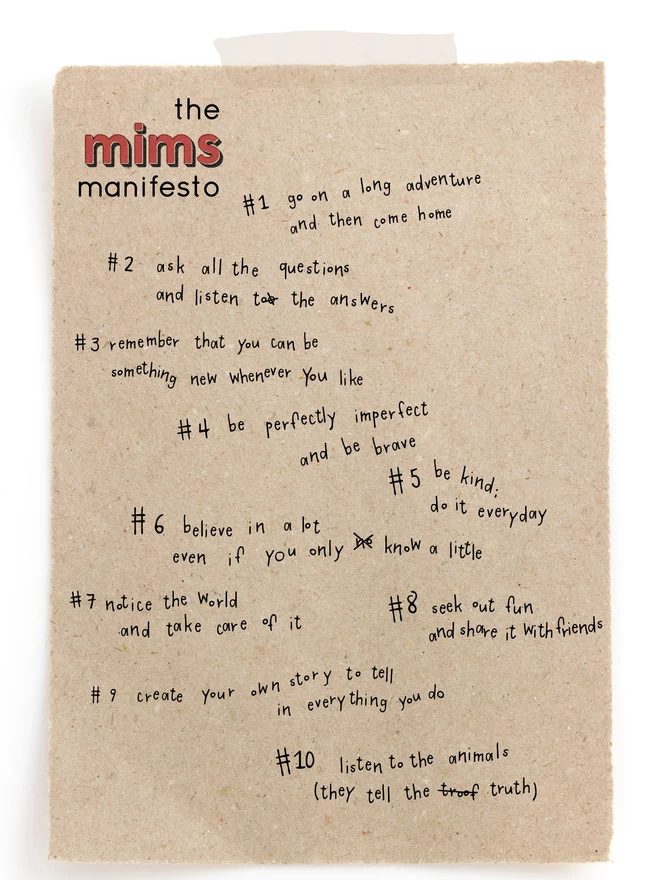 the
mims
manifesto
#1 go on a long adventure
and then come home
#2 ask all the questions
and listen to the answers
#3 remember that you can be
something new whenever you like
#4 be perfectly imperfect
and be brave
#5 be kind;
do it everyday
#6 believe in a lot
even if you only no know a little
#7 notice the world
and take care of it
#8 seek out fun
and share it with friends
#9 create your own story to tell
in everything you do
#10 listen to the animals
(they tell the troof truth)